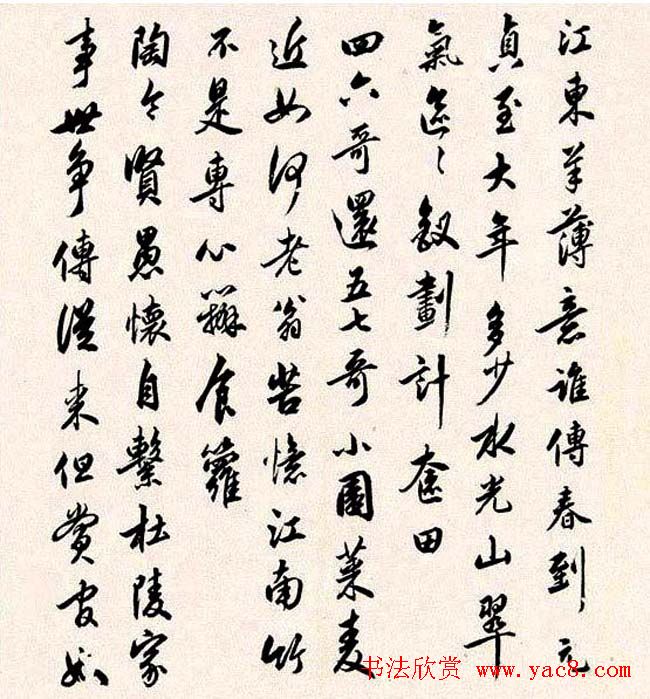 江東羊薄意誰傳春到元
貞至大年多少水光山翠
氣區々釵劃計畬田
四六哥還五七哥小園菜麦
近如何老翁苦憶江南竹
不是專心辦食籮
陶令賢愚懷自繫杜陵家
事世争傳從来但賞官奴
书法欣赏 www.yac8.com